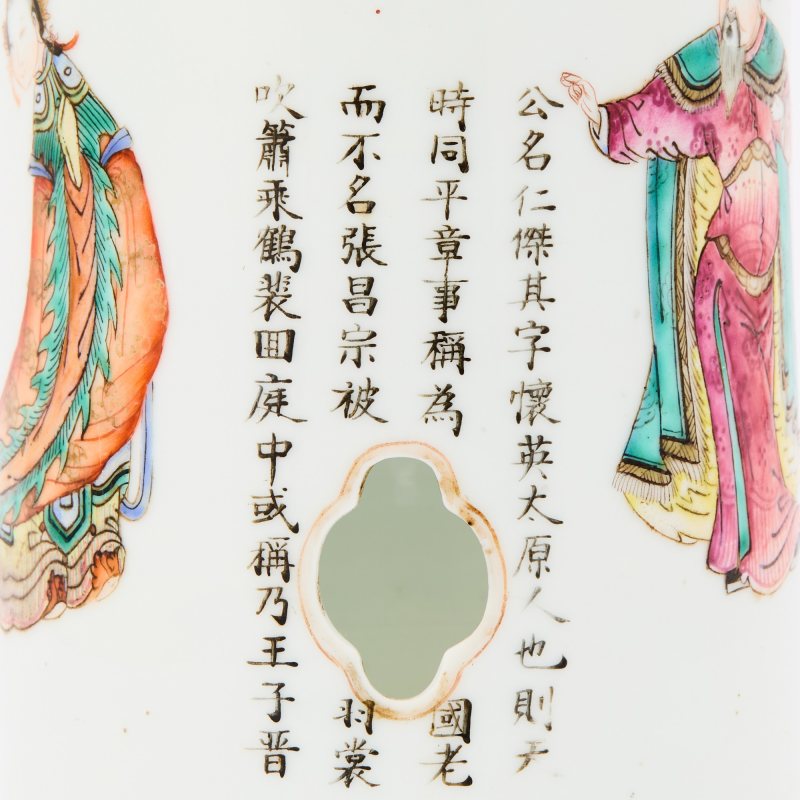 公名仁傑其字懷英太原人也則天
時同平章事稱為國老
而不名張昌宗被羽裳
吹簫乘鶴裴回庭中或稱乃王子晋